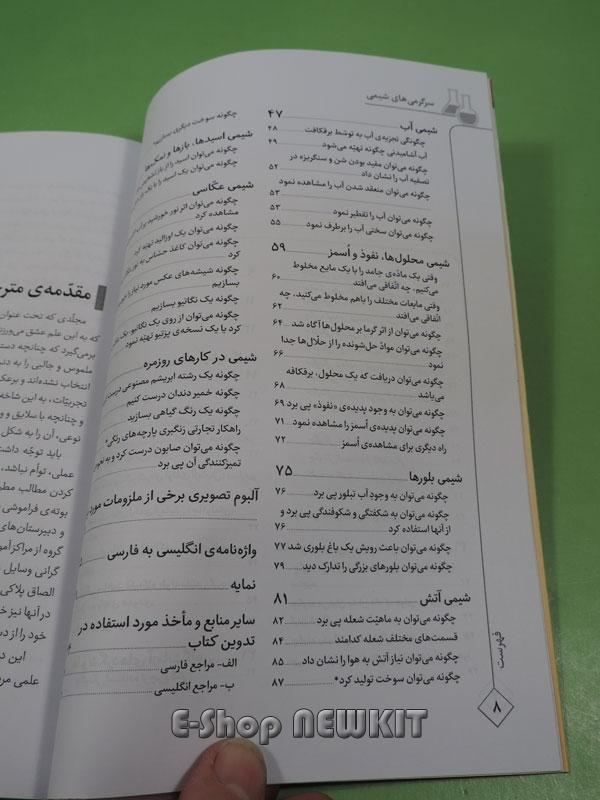 سرگرمی‌های شیمی
شیمی آب ۴۷
چگونگی تجزیه‌ی آب به توسّط برقکافت ۴۸
آب آشامیدنی چگونه تهیّه می‌شود ۴۹
چگونه می‌توان مفید بودن شن و سنگریزه در
تصفیه آب را نشان داد ۵۲
چگونه می‌توان منعقد شدن آب را مشاهده نمود
۵۳
چگونه می‌توان آب را تقطیر نمود ۵۳
چگونه می‌توان سختی آب را برطرف نمود ۵۵
شیمی محلول‌ها، نفوذ و اُسمز ۵۹
وقتی یک مادّه‌ی جامد را با یک مایع مخلوط
می‌کنیم، چه اتّفاقی می‌افتد ۶۰
وقتی مایعات مختلف را باهم مخلوط می‌کنید، چه
اتّفاقی می‌افتد ۶۲
چگونه می‌توان از اثر گرما بر محلول‌ها آگاه شد ۶۴
چگونه می‌توان موادّ حل‌شونده را از حلّال‌ها جدا
نمود ۶۶
چگونه می‌توان دریافت که یک محلول، برقکافه
می‌باشد ۶۸
چگونه می‌توان به وجود پدیده‌ی «نفوذ» پی برد ۶۹
چگونه می‌توان پدیده‌ی اُسمز را مشاهده نمود ۷۱
راه دیگری برای مشاهده‌ی اُسمز ۷۲
شیمی بلورها ۷۵
چگونه می‌توان به وجودِ آب تبلور پی برد ۷۶
چگونه می‌توان به شکفتگی و شکوفندگی پی برد و
از آنها استفاده کرد ۷۶
چگونه می‌توان باعث رویش یک باغ بلوری شد ۷۷
چگونه می‌توان بلورهای بزرگی را تدارک دید ۷۹
شیمی آتش ۸۱
چگونه می‌توان به ماهیّت شعله پی برد ۸۲
قسمت‌های مختلف شعله کدامند ۸۴
چگونه می‌توان نیاز آتش به هوا را نشان داد ۸۵
چگونه می‌توان سوخت تولید کرد* ۸۷
چگونه سوخت دیگری بسازیم
شیمی اسیدها، بازها و نمک‌ها
چگونه می‌توان اسید را از باز
چگونه می‌توان یک اسید را با یک
شیمی عکّاسی
چگونه می‌توان اثر نور خورشید بر
مشاهده کرد
چگونه می‌توان یک اوزالید تهیّه کرد
چگونه می‌توان کاغذ حسّاس به نور
کرد
چگونه شیشه‌های عکس مورد نیاز را
بسازیم
چگونه یک نگاتیو بسازیم
چگونه می‌توان از روی یک نگاتیو،
کرد یا یک نسخه‌ی پزتیو تهیّه نمود
شیمی در کارهای روزمره
چگونه یک رشته ابریشم مصنوعی درست
چگونه خمیر دندان درست کنیم
چگونه یک رنگ گیاهی بسازید
راهکار تجارتی رنگبری پارچه‌های رنگی*
چگونه می‌توان صابون درست کرد و به
تمیزکنندگی آن پی برد
آلبوم تصویری برخی از ملزومات مورد
واژه‌نامه‌ی انگلیسی به فارسی
نمایه
سایر منابع و مأخذ مورد استفاده در
تدوین کتاب
الف- مراجع فارسی
ب- مراجع انگلیسی
فهرست
۸
مقدّمه‌ی مترج
مجلّدی که تحت عنوان
که به این علم عشق می‌ورز
برمی‌گیرد که چنانچه دست
ملموس و جالبی را به دن
انتخاب نشده‌اند و برعک
تجربیّات، به این شاخه
و چنانچه با سلایق و و
نوعی، آن را به شکل
باید توجّه داشت
عملی، توأم نباشد،
کردن مطالب مطر
بوته‌ی فراموشی
و دبیرستان‌های
گروه از مراکز آمو
گرانی وسایل
الصاق پلاکی
در آنها نیز خ
خود را از دس
این در
علمی مر
E-Shop NEWKIT